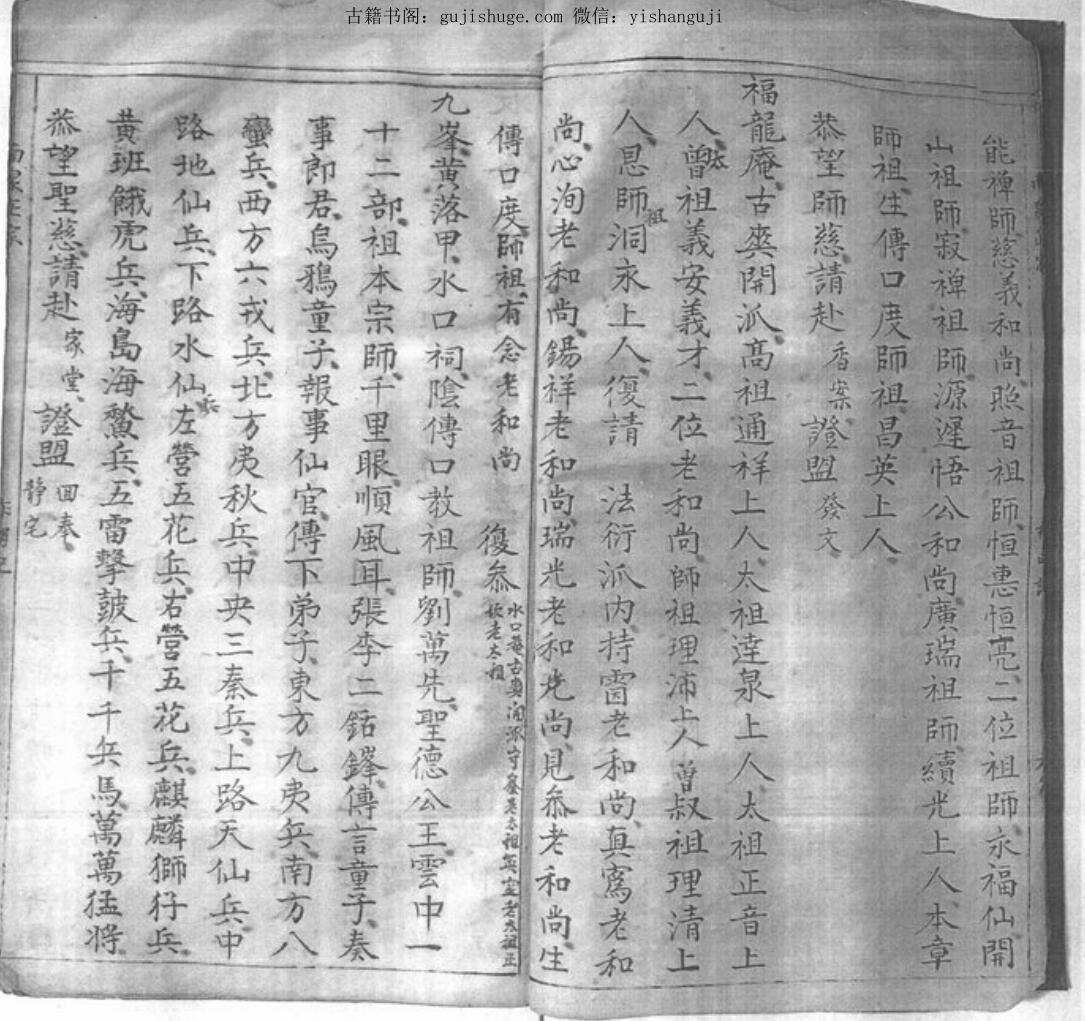 古籍书阁：gujishuge.com 微信：yishanguji
能禪師慈義和尚照音祖師恒惠恒亮二位祖師永福仙開
山祖師寂禅祖師源遲悟公和尚廣瑞祖師續光上人本章
師祖生傳口度師祖昌英上人
恭望師慈請赴 香案 證盟 發文
福龍庵古奕開派高祖通祥上人太祖達泉上人太祖正音上
人曾太祖義安義才二位老和尚師祖理沛上人曾叔祖理清上
人恩師祖洞永上人復請 法衍派内持雷老和尚真窩老和
尚心洵老和尚錫祥老和尚瑞光老和尚見叅老和尚生
傳口度師祖有念老和尚 復叅
九峯黄落甲水口祠陰傳口教祖師劉萬先聖德公王雲中一
十二部祖本宗師千里眼順風耳張李二鋒傳言童子奏
事郎君烏鴉童子報事仙官傳下弟子東方九夷兵南方八
蠻兵西方六戎兵北方夷秋兵中央三秦兵上路天仙兵中
路地仙兵下路水仙兵左營五花兵右營五花兵麒麟獅犴兵
黄班餓虎兵海島海鰲兵五雷擊鼓兵千千兵馬萬萬猛將
恭望聖慈請赴 家堂 證盟 回奉 靜宅